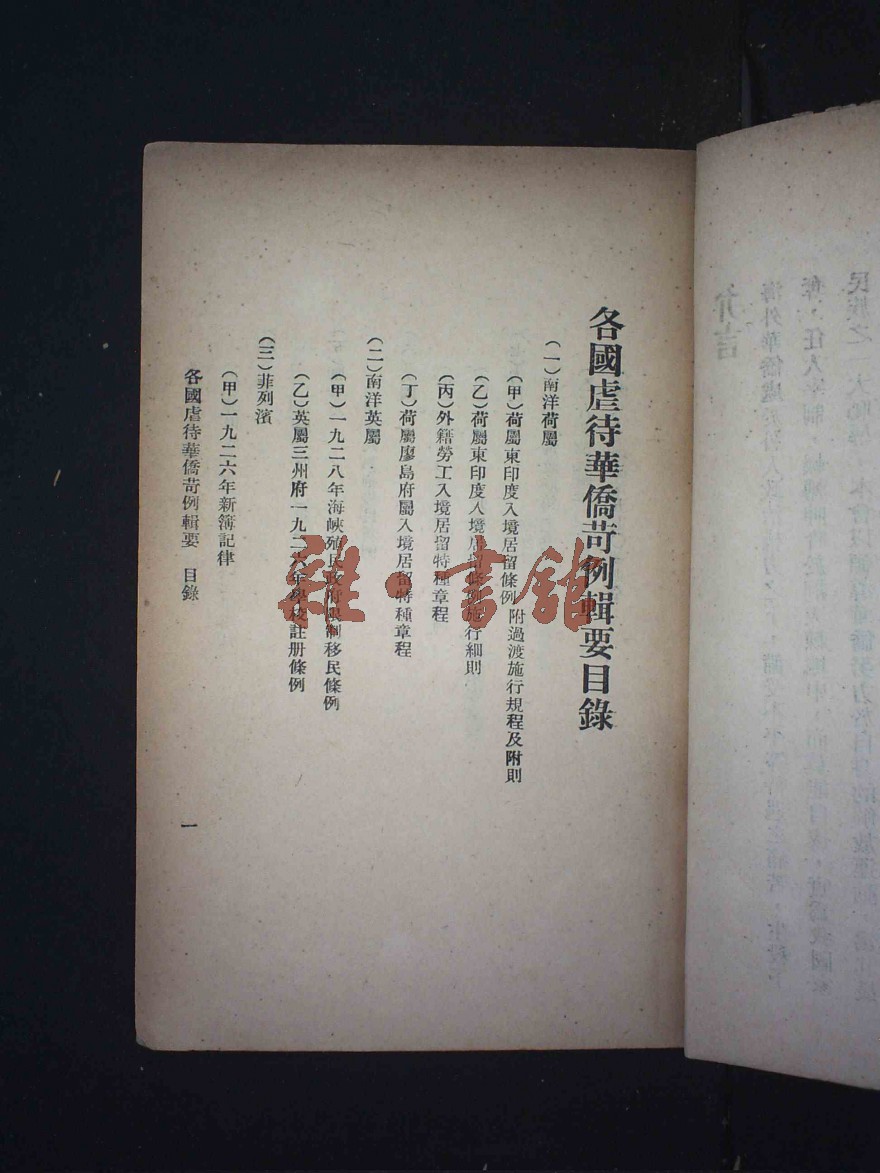 各國虐待華僑苛例輯要目錄
（一）南洋荷屬
（甲）荷屬東印度入境居留條例 附過渡施行規程及附則
（乙）荷屬東印度入境居留條例施行細則
（丙）外籍勞工入境居留特種章程
（丁）荷屬廖島府屬入境居留特種章程
（二）南洋英屬
（甲）一九二八年海峽殖民政府限制移民條例
（乙）英屬三州府一九二六年學校註册條例
（三）菲列濱
（甲）一九二六年新簿記律
各國虐待華僑苛例輯要 目錄
一
雜·書館